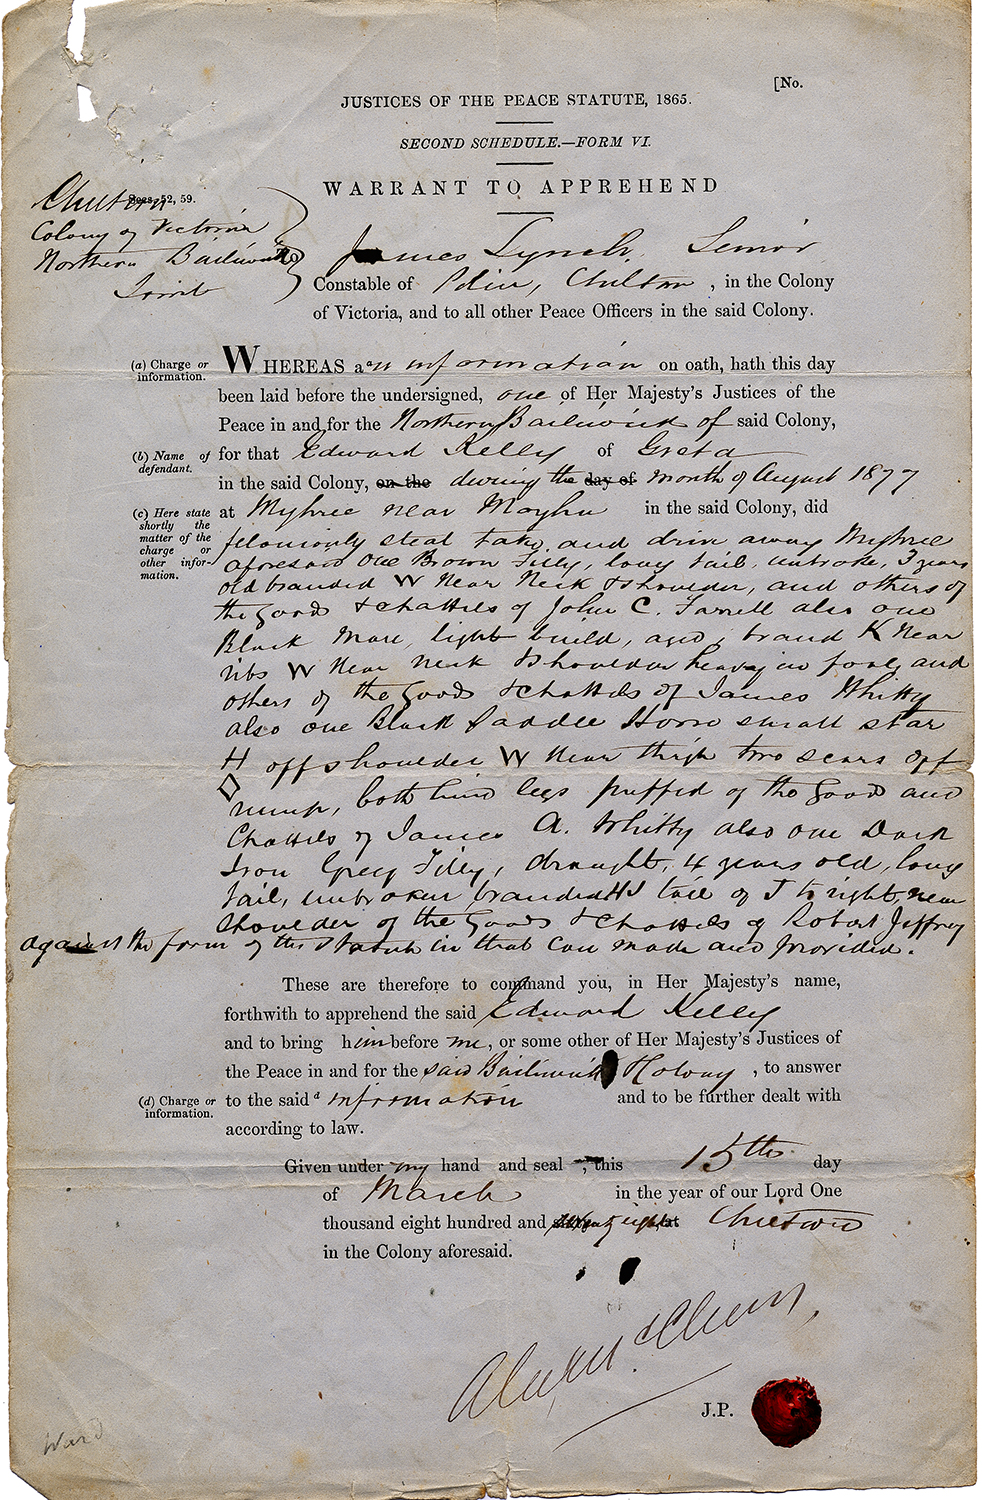 [No.
JUSTICES OF THE PEACE STATUTE, 1865.
SECOND SCHEDULE.—FORM VI.
WARRANT TO APPREHEND
Chiltern Secs. 52, 59.
Colony of Victoria
Northern Bailiwick
to wit
James Lynch, Senior
Constable of Police, Chiltern, in the Colony
of Victoria, and to all other Peace Officers in the said Colony.
(a) Charge or
information.
WHEREAS a an information on oath, hath this day
been laid before the undersigned, one of Her Majesty's Justices of the
Peace in and for the Northern Bailiwick of said Colony,
(b) Name of
defendant.
for that Edward Kelly of Greta
in the said Colony, on the during the day of month of August 1877
(c) Here state
shortly the
matter of the
charge or
other infor-
mation.
at Myhree near Moyhu in the said Colony, did
feloniously steal take and drive away Myhree
aforesaid one Brown Filly, long tail, unbroke, 3 years
old branded W near Neck & shoulder, and others of
the Goods & chattels of John C. Farrell also one
Black Mare, light build, aged, brand K near
ribs W near neck & shoulder heavy in foal, and
others of the Goods & chattels of James Whitty
also one Black Saddle Horse small star
H off shoulder W near thigh two scars off
rump, both hind legs puffed of the Goods and
Chattels of James A. Whitty also one Dark
Iron Grey Filly, draught, 4 years old, long
tail, unbroken, branded HJ tail of J to right, near
shoulder of the Goods & chattels of Robert Jeffrey
against the form of the Statute in that case made and provided.
These are therefore to command you, in Her Majesty's name,
forthwith to apprehend the said Edward Kelly
and to bring him before me, or some other of Her Majesty's Justices of
the Peace in and for the said Bailiwick & Colony, to answer
(d) Charge or
information.
to the said d information and to be further dealt with
according to law.
Given under my hand and seal, this 15th day
of March in the year of our Lord One
thousand eight hundred and seventy eight at Chiltern
in the Colony aforesaid.
J.P.
Ward